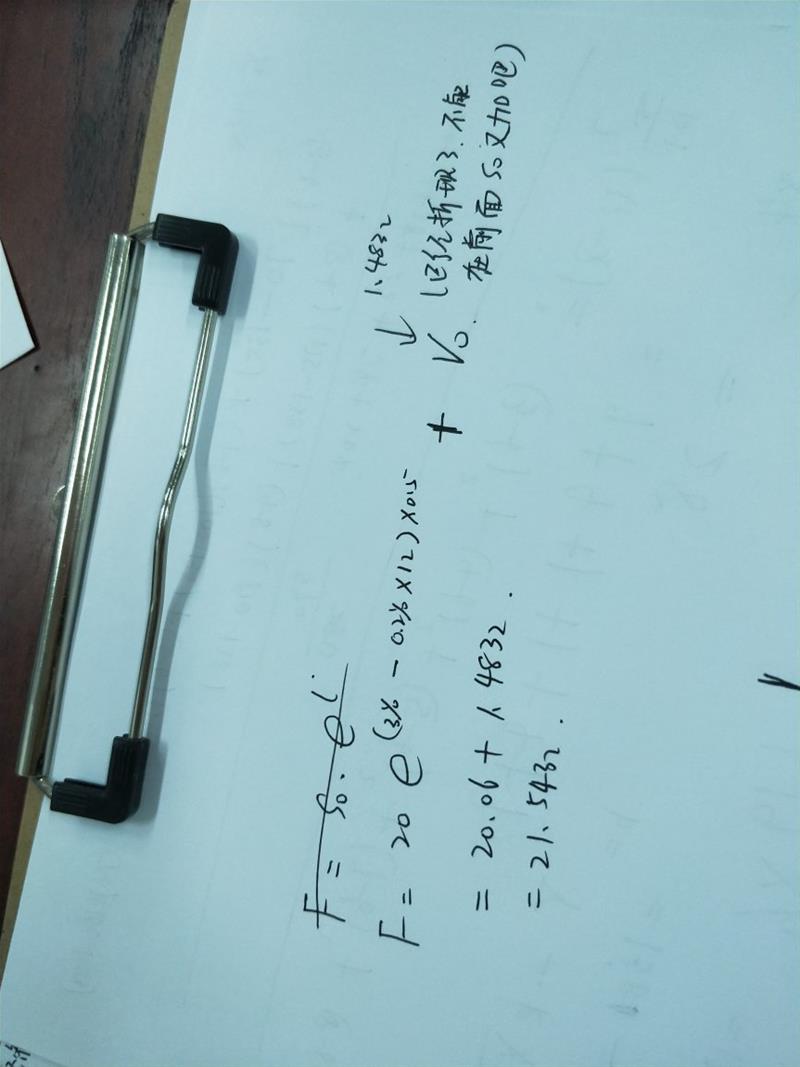 F = S₀ · e^i
F = 20 e^(3% - 0.2% × 12) × 0.5 + V₀. (已经折现了. 不能
在前面 S₀ 又加吧)
↓ 1.4832
= 20.06 + 1.4832.
= 21.5432.